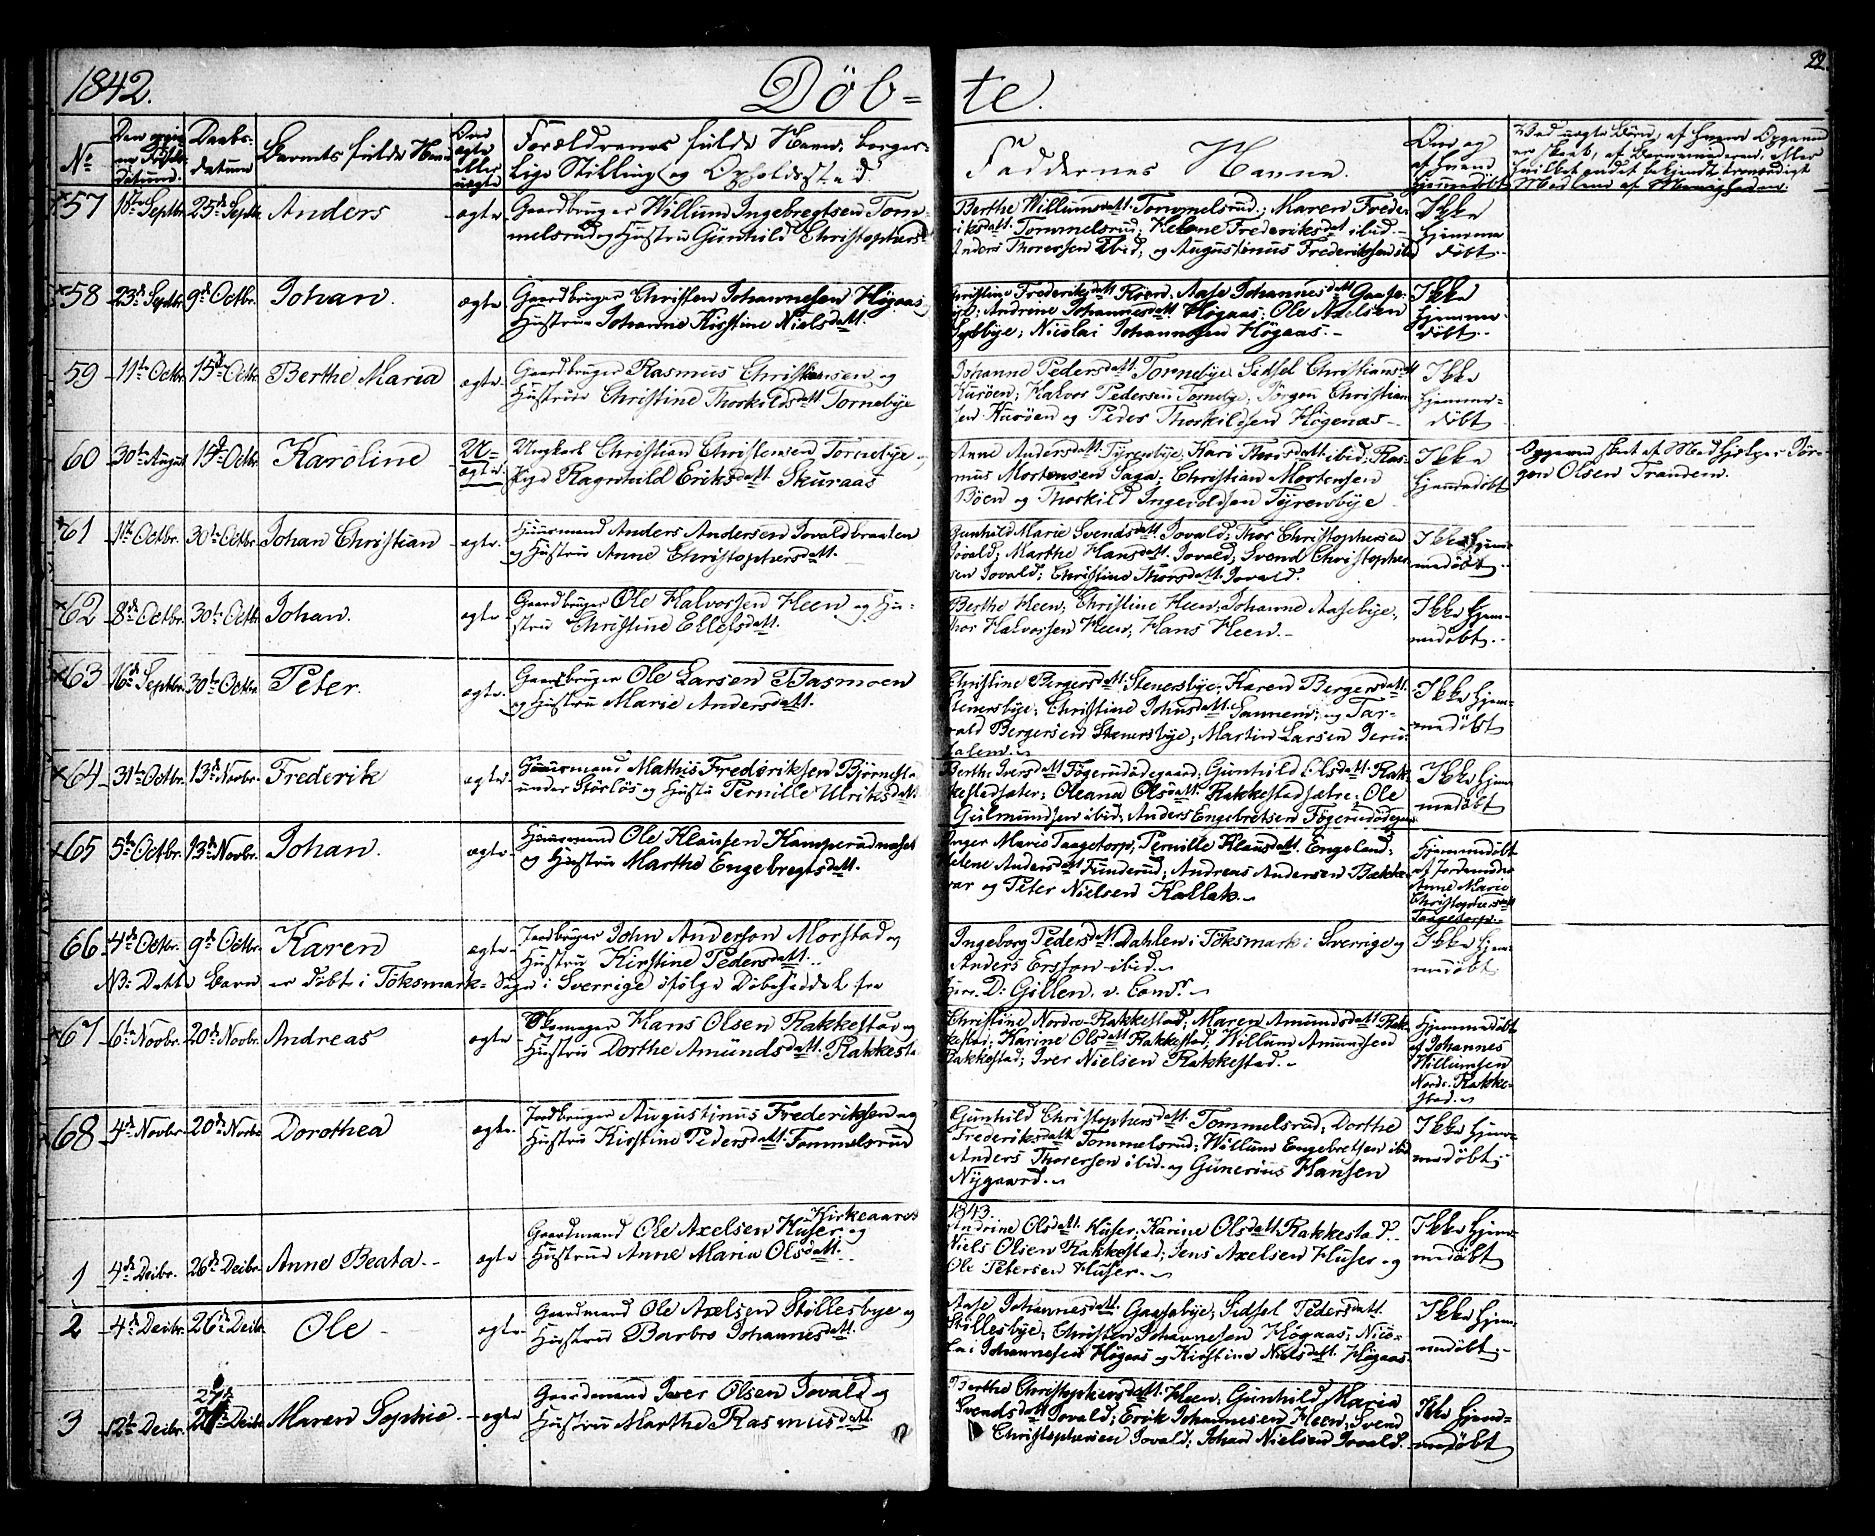 1842. Döb- te. 22.
No
Daabs-
datum
Barnets fulde Navn
Om
ægte
eller
uægte
Forældrenes fulde Navne, borger-
lige Stilling og Opholdssted
Faddernes Navne.
Om og
af hvem
hjemmedöbt
57 25de Septbr. Anders ægte
Gaardbruger Willum Ingebregtsen Tom-
melsrud og Hustru Gunhild Christophersd.
Berthe Willumsdatt. Tommelsrud; Maren Frede-
riksdatt. Tommelsrud; Helene Frederiksdatt ibid.
Anders Thoresen ibid, og Augustinus Frederiksen ibid
Ikke
hjemme
döbt.
58 23de Septbr. 9de Octbr. Johan. ægte
Gaardbruger Christen Johannesen Högaas og
Hustrue Johanne Kirstine Nielsdatt.
Christine Frederiksdatt. Aase Johannesdatt Gaase-
bye; Andrine Johannesdatt. Högaas; Ole Axelsen
Nicolai Johannesen Högaas.
Ikke
hjemme-
döbt.
59 11te Octbr. 15de Octbr. Berthe Maria ægte.
Gaardbruger Rasmus Christiansen og
Hustrue Christine Thorkildsdatt Tornebye
Johanne Pedersdatt Tornebye, Sidsel Christiansdatt
Kuröen; Halvor Pedersen Tornebye; Jörgen Christian-
sen Kuröen og Peder Thorkildsen Högenæs
Ikke
hjemme-
döbt
60 30te August Octbr. Karoline U-
ægte.
Ungkarl Christian Christensen Tornebye og
Pige Ragnhild Eriksdatt. Skuraas
Anne Andersdatt. Tyrensbye; Kari Thorsdatt ibid; Ras-
mus Mortensen Saga; Christian Mortensen
Böen og Thorkild Ingevoldsen Tyrensbye
Ikke
hjemmedöbt
Opgaven skeet af Medhjelper Jör-
gen Olsen Trandem.
61 1te Octbr. 30te Octbr. Johan Christian ægte.
Huusmand Anders Andersen Jovaldbraaten
og Hustrue Anne Christophersdatt.
Gunhild Marie Svendsdatt. Jovald; Thor Christophersen
Jovald; Marthe Hansdatt. Jovald; Svend Christopher-
sen Jovald; Christine Thorsdatt. Jovald.
Ikke hjem-
medöbt
62 8de Octbr. 30te Octbr. Johan. ægte
Gaardbruger Ole Halvorsen Heen og Hu-
stru Christine Ellefsdatt.
Berthe Heen, Christine Heen, Johanne Aasebye,
Thor Halvorsen Heen, Hans Heen.
Ikke hjem-
medöbt.
63 16de Septbr. 30te Octbr. Peter. ægte.
Gaardbruger Ole Larsen Basmoen
og Hustru Marie Andersdatt.
Christine Bergersdatt. Stenersbye; Karen Bergersdatt.
Stenersbye; Christine Johnsdatt. Sannem; og Tar-
vald Bergersen Stenersbye; Martin Larsen Jeru-
salem.
Ikke hjem-
medöbt
64 31te Octbr. 13de Novbr. Frederik ægte.
Huusmand Mathis Frederiksen
under Störlös og Hustru Pernille Ulriksdatt.
Berthe Iversdatt Tögerudödegaard; Gunhild Olsdatt. Rak-
kestadsæter; Oleana Olsdatt. Rakkestadsætre; Ole
Gulmundsen ibid; Anders Engebretsen
Ikke hjem-
medöbt
65 5te Octbr. 13de Novbr. Johan. ægte
Huusmand Ole Klausen Kamperudnæset
og Hustrue Marthe Engebregtsdatt.
Inger Marie Taagetorp; Pernille Klausdatt. Engeland;
Helene Andersdatt Funderud; Andreas Andersen
og Peter Nielsen Kallak.
Hjemmedöbt
af Jordemoder
Anne Marie
Christophersdatt
Taagetorp.
66 4de Octbr. 9de Octbr. Karen ægte.
Jordbruger John Anderson Morstad og
Hustru Kirstine Pedersdatt.
Ingeborg Pedersdatt Dahlen i Töksmark i Sverrige og
Anders Ersson ibid.
Ikke hjem-
medöbt
NB. Dette Barn er döbt i Töksmark Sogn i Sverrige ifölge Döbeseddel fra
Herr D. Gillen, v. Com.
67 6te Novbr. 20de Novbr. Andreas ægte
Skomager Hans Olsen Rakkestad og
Hustru Dorthe Amundsdatt. Rakkestad
Christine Nordre-Rakkestad; Maren Amundsdatt Rak-
kestad; Karine Olsdatt Rakkestad; Willum Amundsen
Rakkestad; Iver Nielsen Rakkestad.
Hjemmedöbt
af Johannes
Willumsen
Nordr. Rakke-
stad.
68 4de Novbr. 20de Novbr Dorothea ægte.
Jordbruger Augustinus Frederiksen og
Hustru Kirstine Pedersdatt. Tommelsrud
Gunhild Christophersdatt. Tommelsrud; Dorthe
Frederiksdatt Tommelsrud; Willum Engebretsen ibid
Anders Thorersen ibid. og Gunerius Hansen
Nygaard.
Ikke hjem-
medöbt;
1843.
1 4de Decbr. 26de Decbr. Anne Beata. ægte
Kirkeaares
Gaardmand Ole Axelsen Huser og
Hustrue Anne Maria Olsdatt.
Andrine Olsdatt. Huser, Karine Olsdatt Rakkestad.
Niels Olsen Rakkestad; Jens Axelsen Huser og
Ole Petersen Huser.
Ikke hjem-
medöbt
2 4de Decbr. 26de Decbr. Ole ægte
Gaardmand Ole Axelsen Stillesbye og
Hustrue Barbro Johannesdatt.
Aase Johannesdatt. Gaasebye; Sidsel Pedersdatt.
Stillesbye; Christen Johannesen Högaas; Nico-
lai Johannesen Högaas og Kirstine Nielsdatt. Högaas.
Ikke hjem-
medöbt;
3 12te Decbr. 27de Decbr Maren Sophie. ægte
Gaardmand Iver Olsen Jovald og
Hustrue Marthe Rasmusdatt.
Berthe Christophersdatt. Heen; Gunhild Maria
Svendsdatt Jovald; Erik Johannesen Heen; Svend
Christophersen Jovald; Johan Nielsen Jovald.
Ikke hjem-
medöbt